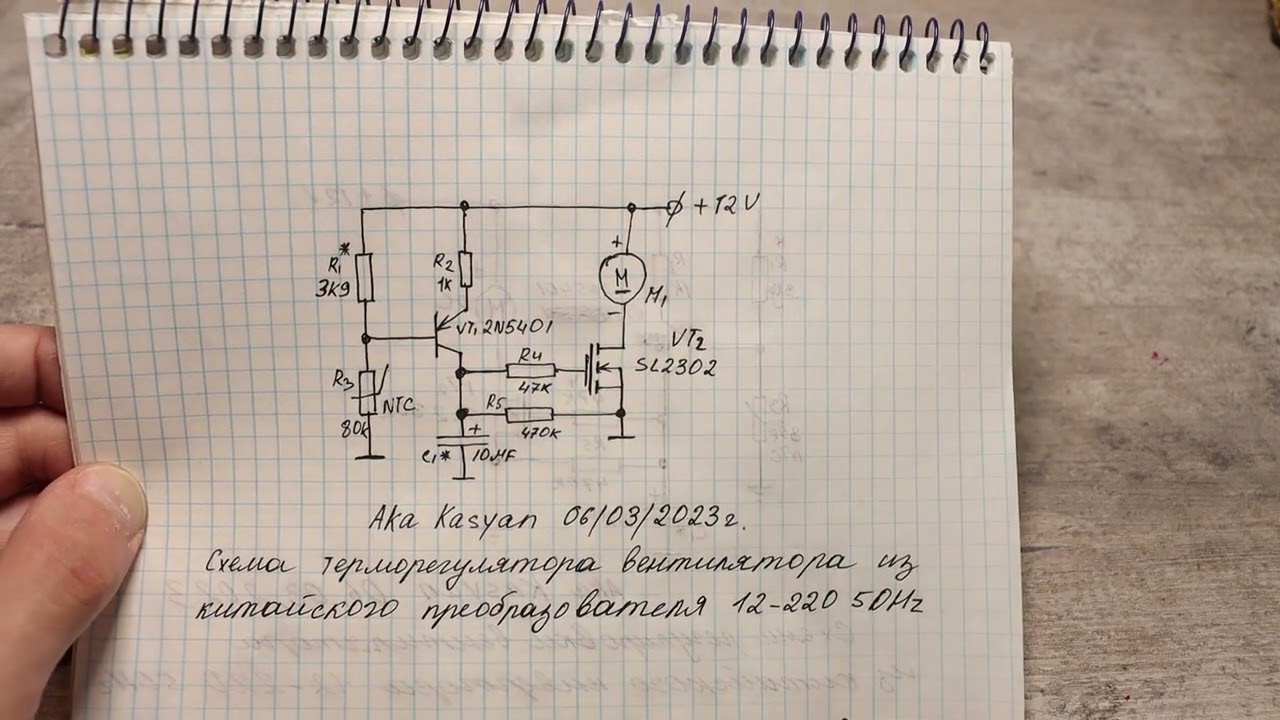 +12V
R1*
3K9
R2
1K
M
M1
+
-
VT1 2N5401
VT2
SL2302
R3
NTC
80K
R4
47K
R5
470K
+
C1*
10MF
Aka Kasyan 06/03/2023г.
Схема терморегулятора вентилятора из
китайского преобразователя 12-220 50Hz